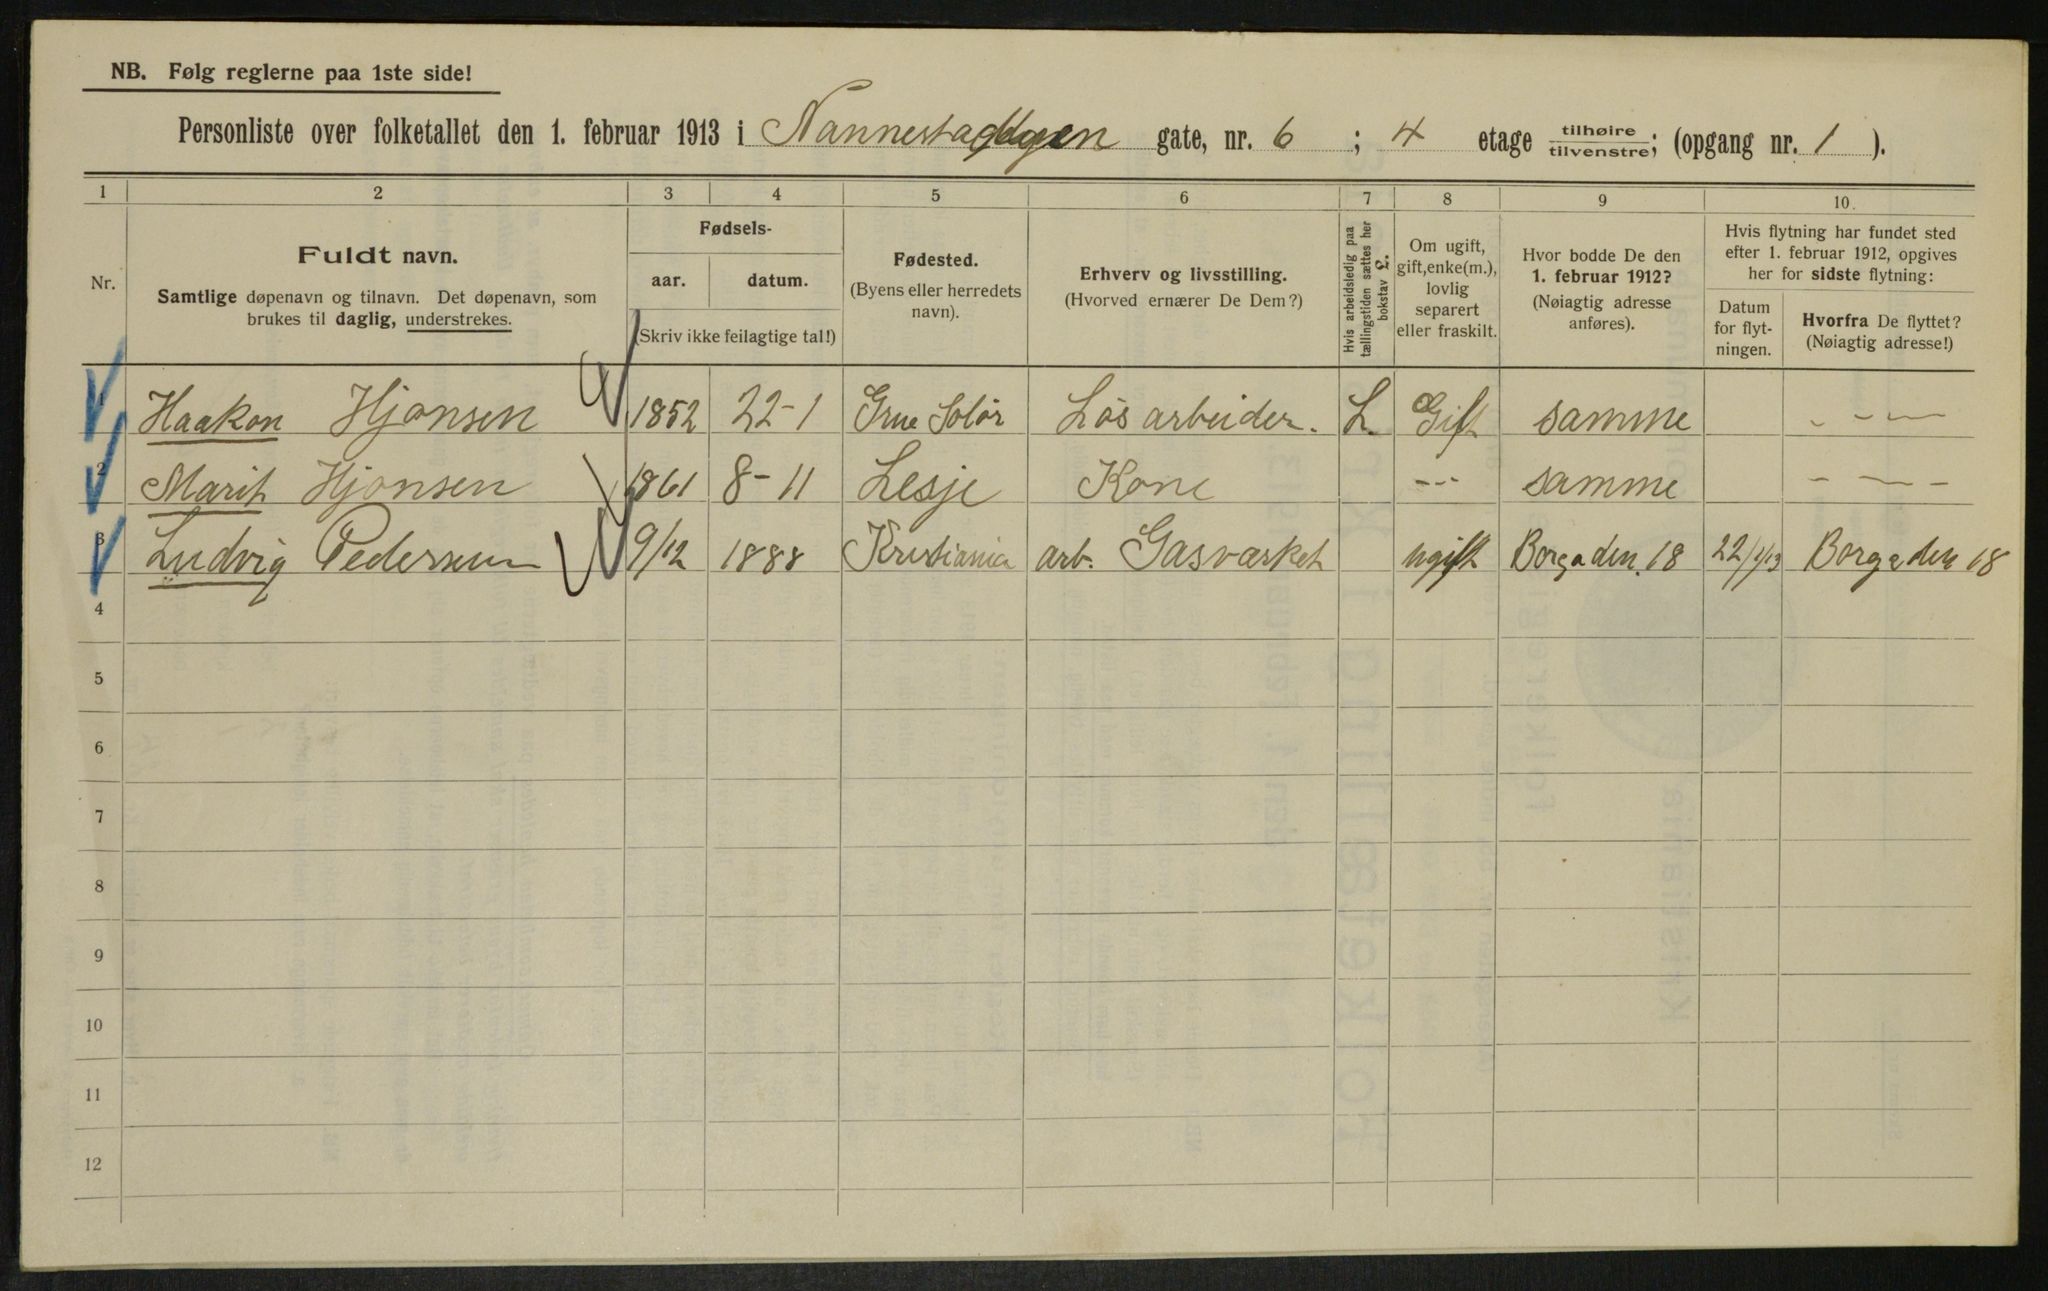 NB. Følg reglerne paa 1ste side!
Personliste over folketallet den 1. februar 1913 i Nannestadgen gate, nr. 6 ; 4 etage tilhøire tilvenstre; (opgang nr. 1 ).
1 2 3 4 5 6 7 8 9 10.
Nr.
Fuldt navn.
Samtlige døpenavn og tilnavn. Det døpenavn, som
brukes til daglig, understrekes.
Fødsels-
aar. datum.
(Skriv ikke feilagtige tal!)
Fødested.
(Byens eller herredets
navn).
Erhverv og livsstilling.
(Hvorved ernærer De Dem?)
Hvis arbeidsledig paa
tællingstiden sættes her
bokstav £.
Om ugift,
gift, enke(m.),
lovlig
separert
eller fraskilt.
Hvor bodde De den
1. februar 1912?
(Nøiagtig adresse
anføres).
Hvis flytning har fundet sted
efter 1. februar 1912, opgives
her for sidste flytning:
Datum
for flyt-
ningen.
Hvorfra De flyttet?
(Nøiagtig adresse!)
1 Haakon Hjonsen 1852 22-1 Grue Solør Løsarbeider. L. Gift samme - - -
2 Marit Hjonsen 1861 8-11 Lesje Kone --- samme - - -
3 Ludvig Pedersen 9/12 1888 Kristiania arb. Gasværket ugift Borgaden 18 22/1/13 Borgaden 18
4
5
6
7
8
9
10
11
12